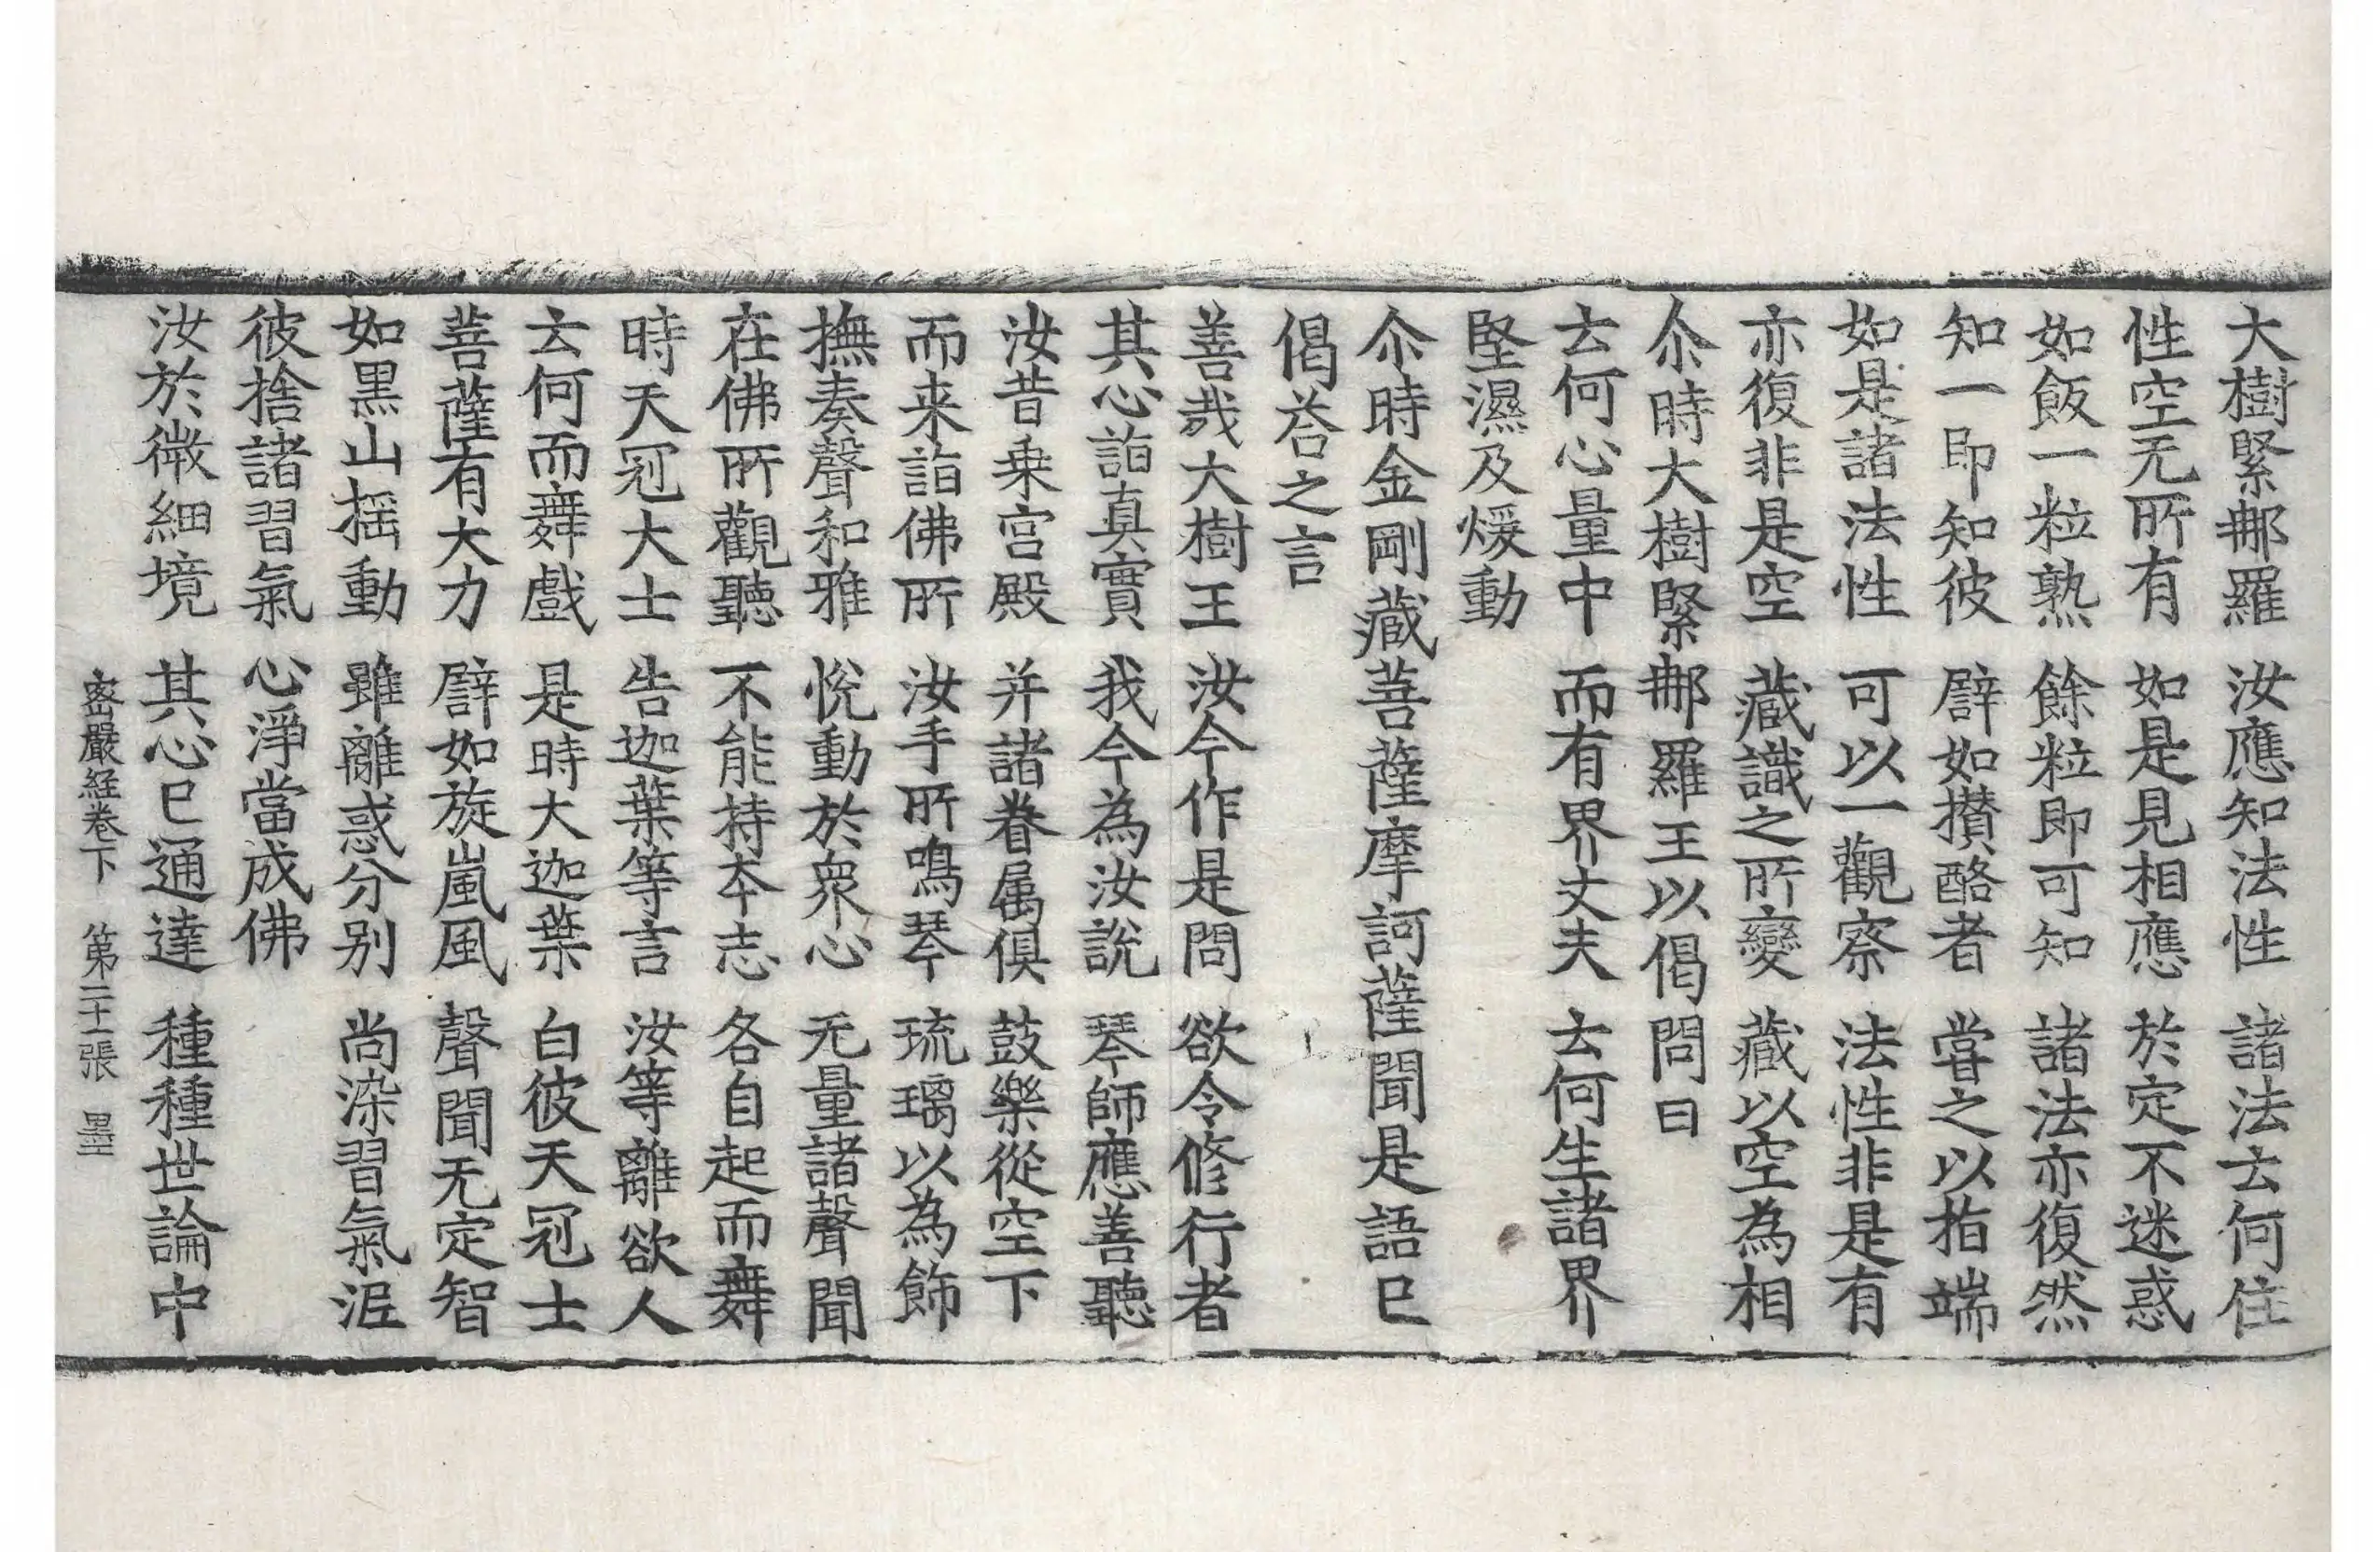 大樹緊那羅　汝應知法性　諸法云何住
性空无所有　如是見相應　於定不迷惑
如飯一粒熟　餘粒即可知　諸法亦復然
知一即知彼　譬如攢酪者　甞之以指端
如是諸法性　可以一觀察　法性非是有
亦復非是空　藏識之所變　藏以空為相
尒時大樹緊那羅王以偈問曰
云何心量中　而有界丈夫　云何生諸界
堅濕及煖動
尒時金剛藏菩薩摩訶薩聞是語已
偈荅之言
善哉大樹王　汝今作是問　欲令修行者
其心詣真實　我今為汝說　琴師應善聽
汝昔乗宮殿　并諸眷属俱　鼓樂從空下
而来詣佛所　汝手所鳴琴　琉璃以為飾
撫奏聲和雅　悅動於衆心　无量諸聲聞
在佛所觀聽　不能持夲志　各自起而舞
時天冠大士　告迦葉等言　汝等離欲人
云何而舞戲　是時大迦葉　白彼天冠士
菩薩有大力　譬如旋嵐風　聲聞无定智
如黑山揺動　雖離惑分别　尚染習氣泥
彼捨諸習氣　心淨當成佛
汝於微細境　其心已通達　種種世論中
密嚴経卷下　第二十一張　墨